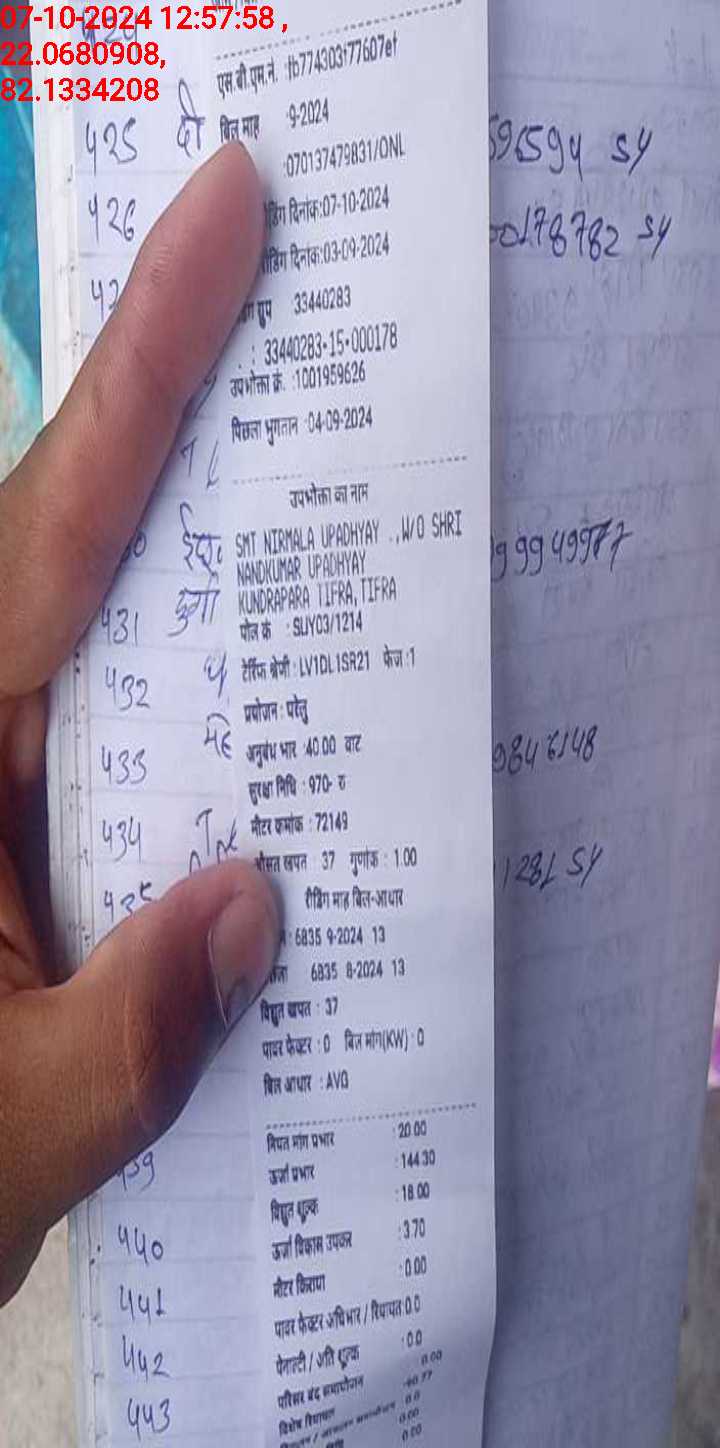 07-10-2024 12:57:58 ,
22.0680908,
82.1334208
एस.बी.एम.नं. :fb774303f77607ef
बिल माह 9-2024
:070137479831/ONL
डिंग दिनांक:07-10-2024
डिंग दिनांक:03-09-2024
ग्रुप 33440283
: 33440283-15-000178
उपभोक्ता क्रं. :1001959626
पिछला भुगतान :04-09-2024
उपभोक्ता का नाम
SMT NIRMALA UPADHYAY .,W/O SHRI
NANDKUMAR UPADHYAY
KUNDRAPARA TIFRA,TIFRA
पोल क्रं : SUY03/1214
टैरिफ श्रेणी : LV1DL1SR21 फेज :1
प्रयोजन : घरेलु
अनुबंध भार :40.00 वाट
सुरक्षा निधि : 970- रु
मीटर क्रमांक : 72149
औसत खपत : 37 गुणांक : 1.00
रीडिंग माह बिल-आधार
: 6835 9-2024 13
6835 8-2024 13
विद्युत खपत : 37
पावर फेक्टर : 0 बिल मांग(KW) : 0
बिल आधार : AVG
नियत मांग प्रभार : 20.00
ऊर्जा प्रभार : 144.30
विद्युत शुल्क : 18.00
ऊर्जा विकास उपकर : 3.70
मीटर किराया : 0.00
पावर फेक्टर अधिभार / रियायत:0.0
पेनाल्टी / अति शुल्क : 0.0
परिसर बंद समायोजन 0.00
विशेष रियायत -40.77
0.0
0.00
0.00
425 दी
426
431 दुर्गा
432
433
434
435
439
440
441
442
443
96594 SY
00178782 SY
99949977
9846148
11281 SY